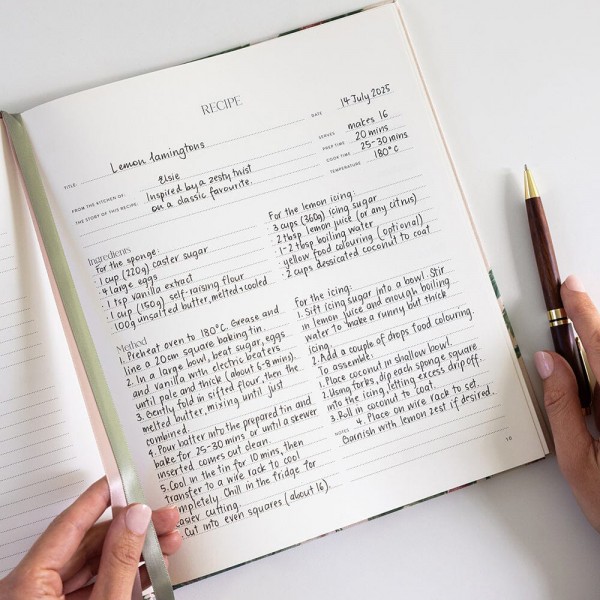 RECIPE
DATE 14 July 2025
TITLE Lemon lamingtons
SERVES makes 16
FROM THE KITCHEN OF: Elsie
PREP TIME 20 mins
THE STORY OF THIS RECIPE: Inspired by a zesty twist
on a classic favourite.
COOK TIME 25-30 mins
TEMPERATURE 180°c
Ingredients
For the sponge:
1 cup (220g) caster sugar
4 large eggs
1 tsp vanilla extract
1 cup (150g) self-raising flour
100g unsalted butter, melted + cooled
For the lemon icing:
3 cups (360g) icing sugar
2 tbsp lemon juice (or any citrus)
1-2 tbsp boiling water
yellow food colouring (optional)
2 cups dessicated coconut to coat
Method
1. Preheat oven to 180°C. Grease and
line a 20cm square baking tin.
2. In a large bowl, beat sugar, eggs
and vanilla with electric beaters
until pale and thick (about 6-8 mins).
3. Gently fold in sifted flour, then the
melted butter, mixing until just
combined.
4. Pour batter into the prepared tin and
bake for 25-30 mins or until a skewer
inserted comes out clean.
5. Cool in the tin for 10 mins, then
transfer to a wire rack to cool
completely. Chill in the fridge for
easier cutting.
. Cut into even squares (about 16)
For the icing:
1. Sift icing sugar into a bowl. Stir
in lemon juice and enough boiling
water to make a runny but thick
icing.
2. Add a couple of drops food colouring.
To assemble:
1. Place coconut in shallow bowl.
2. Using forks, dip each sponge square
into the icing, letting excess drip off.
3. Roll in coconut to coat.
4. Place on wire rack to set.
NOTES
Garnish with lemon zest if desired.